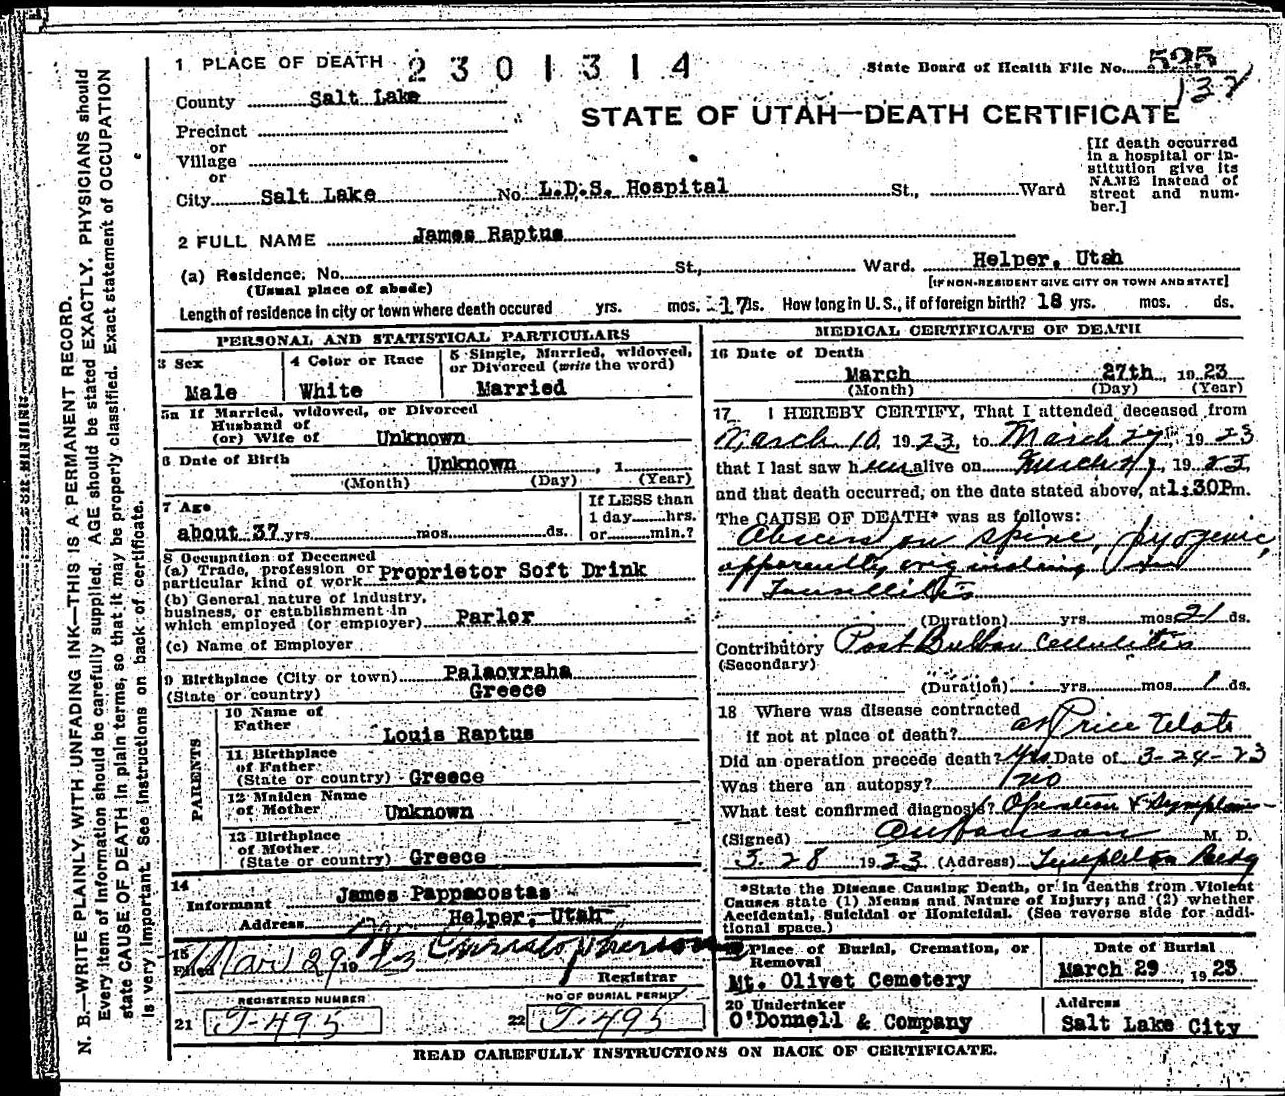 1 PLACE OF DEATH 2301314
State Board of Health File No. 525
132
County Salt Lake
STATE OF UTAH—DEATH CERTIFICATE
Precinct
or
Village
or
City Salt Lake No. L.D.S. Hospital St., Ward
[If death occurred
in a hospital or in-
stitution give its
NAME instead of
street and num-
ber.]
2 FULL NAME James Raptus
(a) Residence: No. St., Ward. Helper, Utah
(Usual place of abode) [IF NON-RESIDENT GIVE CITY OR TOWN AND STATE]
Length of residence in city or town where death occured yrs. mos. 17 ds. How long in U.S., if of foreign birth? 18 yrs. mos. ds.
PERSONAL AND STATISTICAL PARTICULARS
3 Sex
Male
4 Color or Race
White
5 Single, Married, widowed,
or Divorced (write the word)
Married
5a If Married, widowed, or Divorced
Husband of
(or) Wife of Unknown
6 Date of Birth Unknown , 1
(Month) (Day) (Year)
7 Age
about 37 yrs. mos. ds.
If LESS than
1 day hrs.
or min.?
8 Occupation of Deceased
(a) Trade, profession or
particular kind of work Proprietor Soft Drink
(b) General nature of industry,
business, or establishment in
which employed (or employer) Parlor
(c) Name of Employer
9 Birthplace (City or town) Palaovraha
(State or country) Greece
PARENTS
10 Name of
Father Louis Raptus
11 Birthplace
of Father
(State or country) Greece
12 Maiden Name
of Mother Unknown
13 Birthplace
of Mother
(State or country) Greece
14
Informant James Pappacostas
Address Helper, Utah
15
Filed Mar 29 1923 Christopherson
Registrar
REGISTERED NUMBER
21 T-495
NO OF BURIAL PERMIT
22 T-495
MEDICAL CERTIFICATE OF DEATH
16 Date of Death
March 27th, 1923
(Month) (Day) (Year)
17 I HEREBY CERTIFY, That I attended deceased from
March 10, 1923, to March 27th 1923
that I last saw h alive on March 27, 1923,
and that death occurred, on the date stated above, at 1:30P m.
The CAUSE OF DEATH* was as follows:
Abscess on spine, pyogenic,
apparently originating in
Tonsillitis
(Duration) yrs. mos. 21 ds.
Contributory Post Bulbar Cellulitis
(Secondary)
(Duration) yrs. mos. 1 ds.
18 Where was disease contracted
if not at place of death? at Price Utah
Did an operation precede death? yes Date of 3-24-23
Was there an autopsy? no
What test confirmed diagnosis? Operation & Symptoms
(Signed) M. D.
3-28 1923 (Address) Templeton Bldg
*State the Disease Causing Death, or in deaths from Violent
Causes state (1) Means and Nature of Injury; and (2) whether
Accidental, Suicidal or Homicidal. (See reverse side for addi-
tional space.)
Place of Burial, Cremation, or
Removal
Mt. Olivet Cemetery
Date of Burial
March 29 1923
20 Undertaker
O'Donnell & Company
Address
Salt Lake City
READ CAREFULLY INSTRUCTIONS ON BACK OF CERTIFICATE.
N. B.—WRITE PLAINLY, WITH UNFADING INK—THIS IS A PERMANENT RECORD.
Every item of information should be carefully supplied. AGE should be stated EXACTLY. PHYSICIANS should
state CAUSE OF DEATH in plain terms, so that it may be properly classified. Exact statement of OCCUPATION
is very important. See instructions on back of certificate.